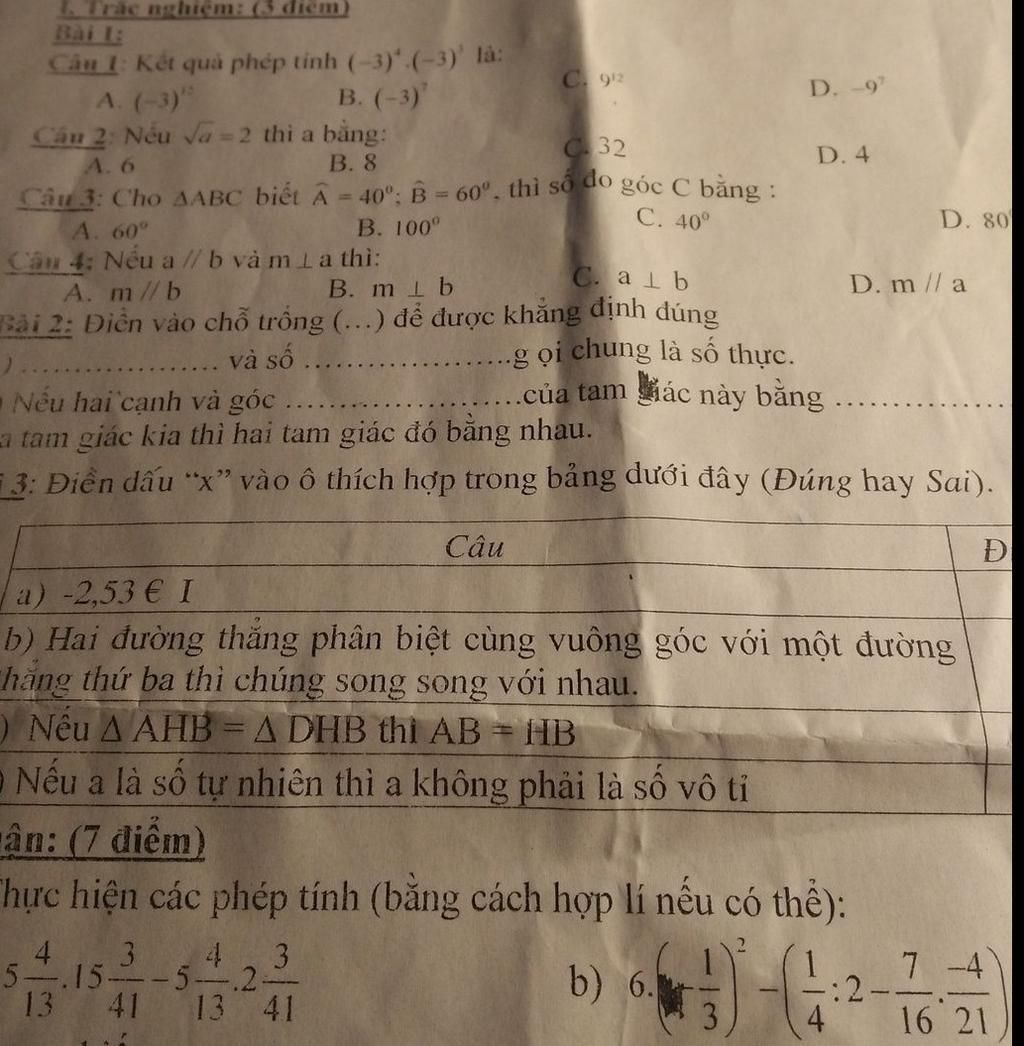 I. Trắc nghiệm: (3 điểm)
Bài 1:
Câu 1: Kết quả phép tính (−3)⁴.(−3)³ là:
A. (−3)¹² B. (−3)⁷ C. 9¹² D. −9⁷
Câu 2: Nếu √a = 2 thì a bằng:
A. 6 B. 8 C. 32 D. 4
Câu 3: Cho ΔABC biết Â = 40⁰; B̂ = 60⁰, thì số đo góc C bằng :
A. 60⁰ B. 100⁰ C. 40⁰ D. 80
Câu 4: Nếu a // b và m ⊥ a thì:
A. m // b B. m ⊥ b C. a ⊥ b D. m // a
Bài 2: Điền vào chỗ trống (…) để được khẳng định đúng
) .................. và số ....................g ọi chung là số thực.
Nếu hai cạnh và góc .......................của tam giác này bằng ................
a tam giác kia thì hai tam giác đó bằng nhau.
i 3: Điền dấu “x” vào ô thích hợp trong bảng dưới đây (Đúng hay Sai).
Câu Đ
a) -2,53 € I
b) Hai đường thẳng phân biệt cùng vuông góc với một đường
thẳng thứ ba thì chúng song song với nhau.
) Nếu Δ AHB = Δ DHB thì AB = HB
) Nếu a là số tự nhiên thì a không phải là số vô tỉ
ận: (7 điểm)
Thực hiện các phép tính (bằng cách hợp lí nếu có thể):
5 4/13 . 15 3/41 − 5 4/13 . 2 3/41 b) 6.(−1/3)² − (1/4 : 2 − 7/16 . −4/21)